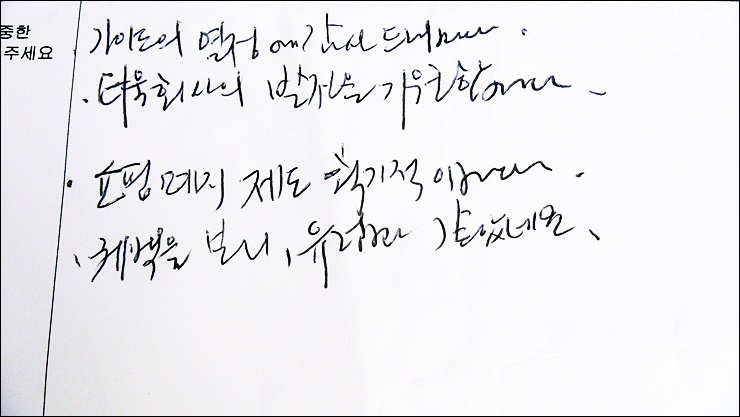 중한
주세요
가이드의 열정에 감사드립니다.
더욱 회사의 발전을 기원합니다.
쇼핑 폐지 제도 획기적 입니다.
퀘백을 보니, 유럽과 같았네요.